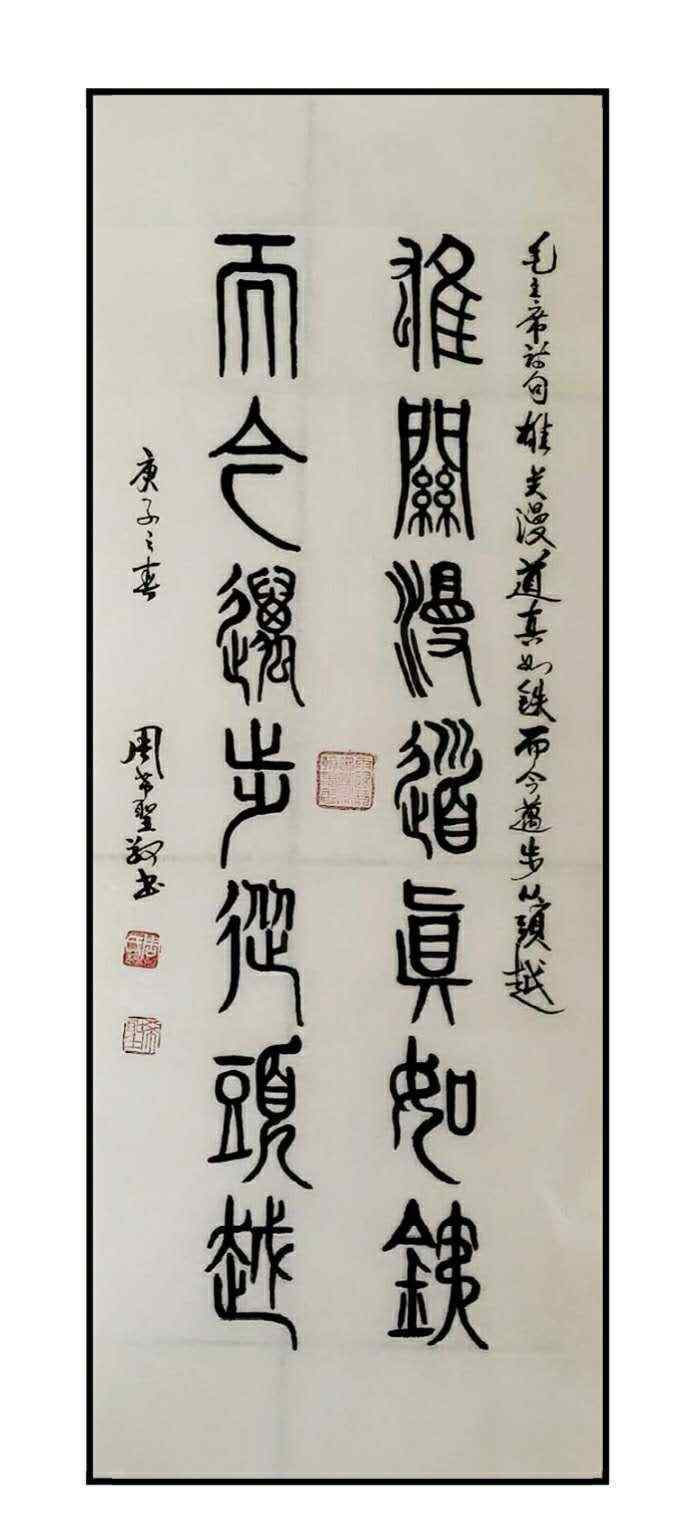 毛主席诗句雄关漫道真如鉄而今邁步从頭越
雄關漫道眞如鉄
而今邁步從頭越
庚子之春 周希聖敬书